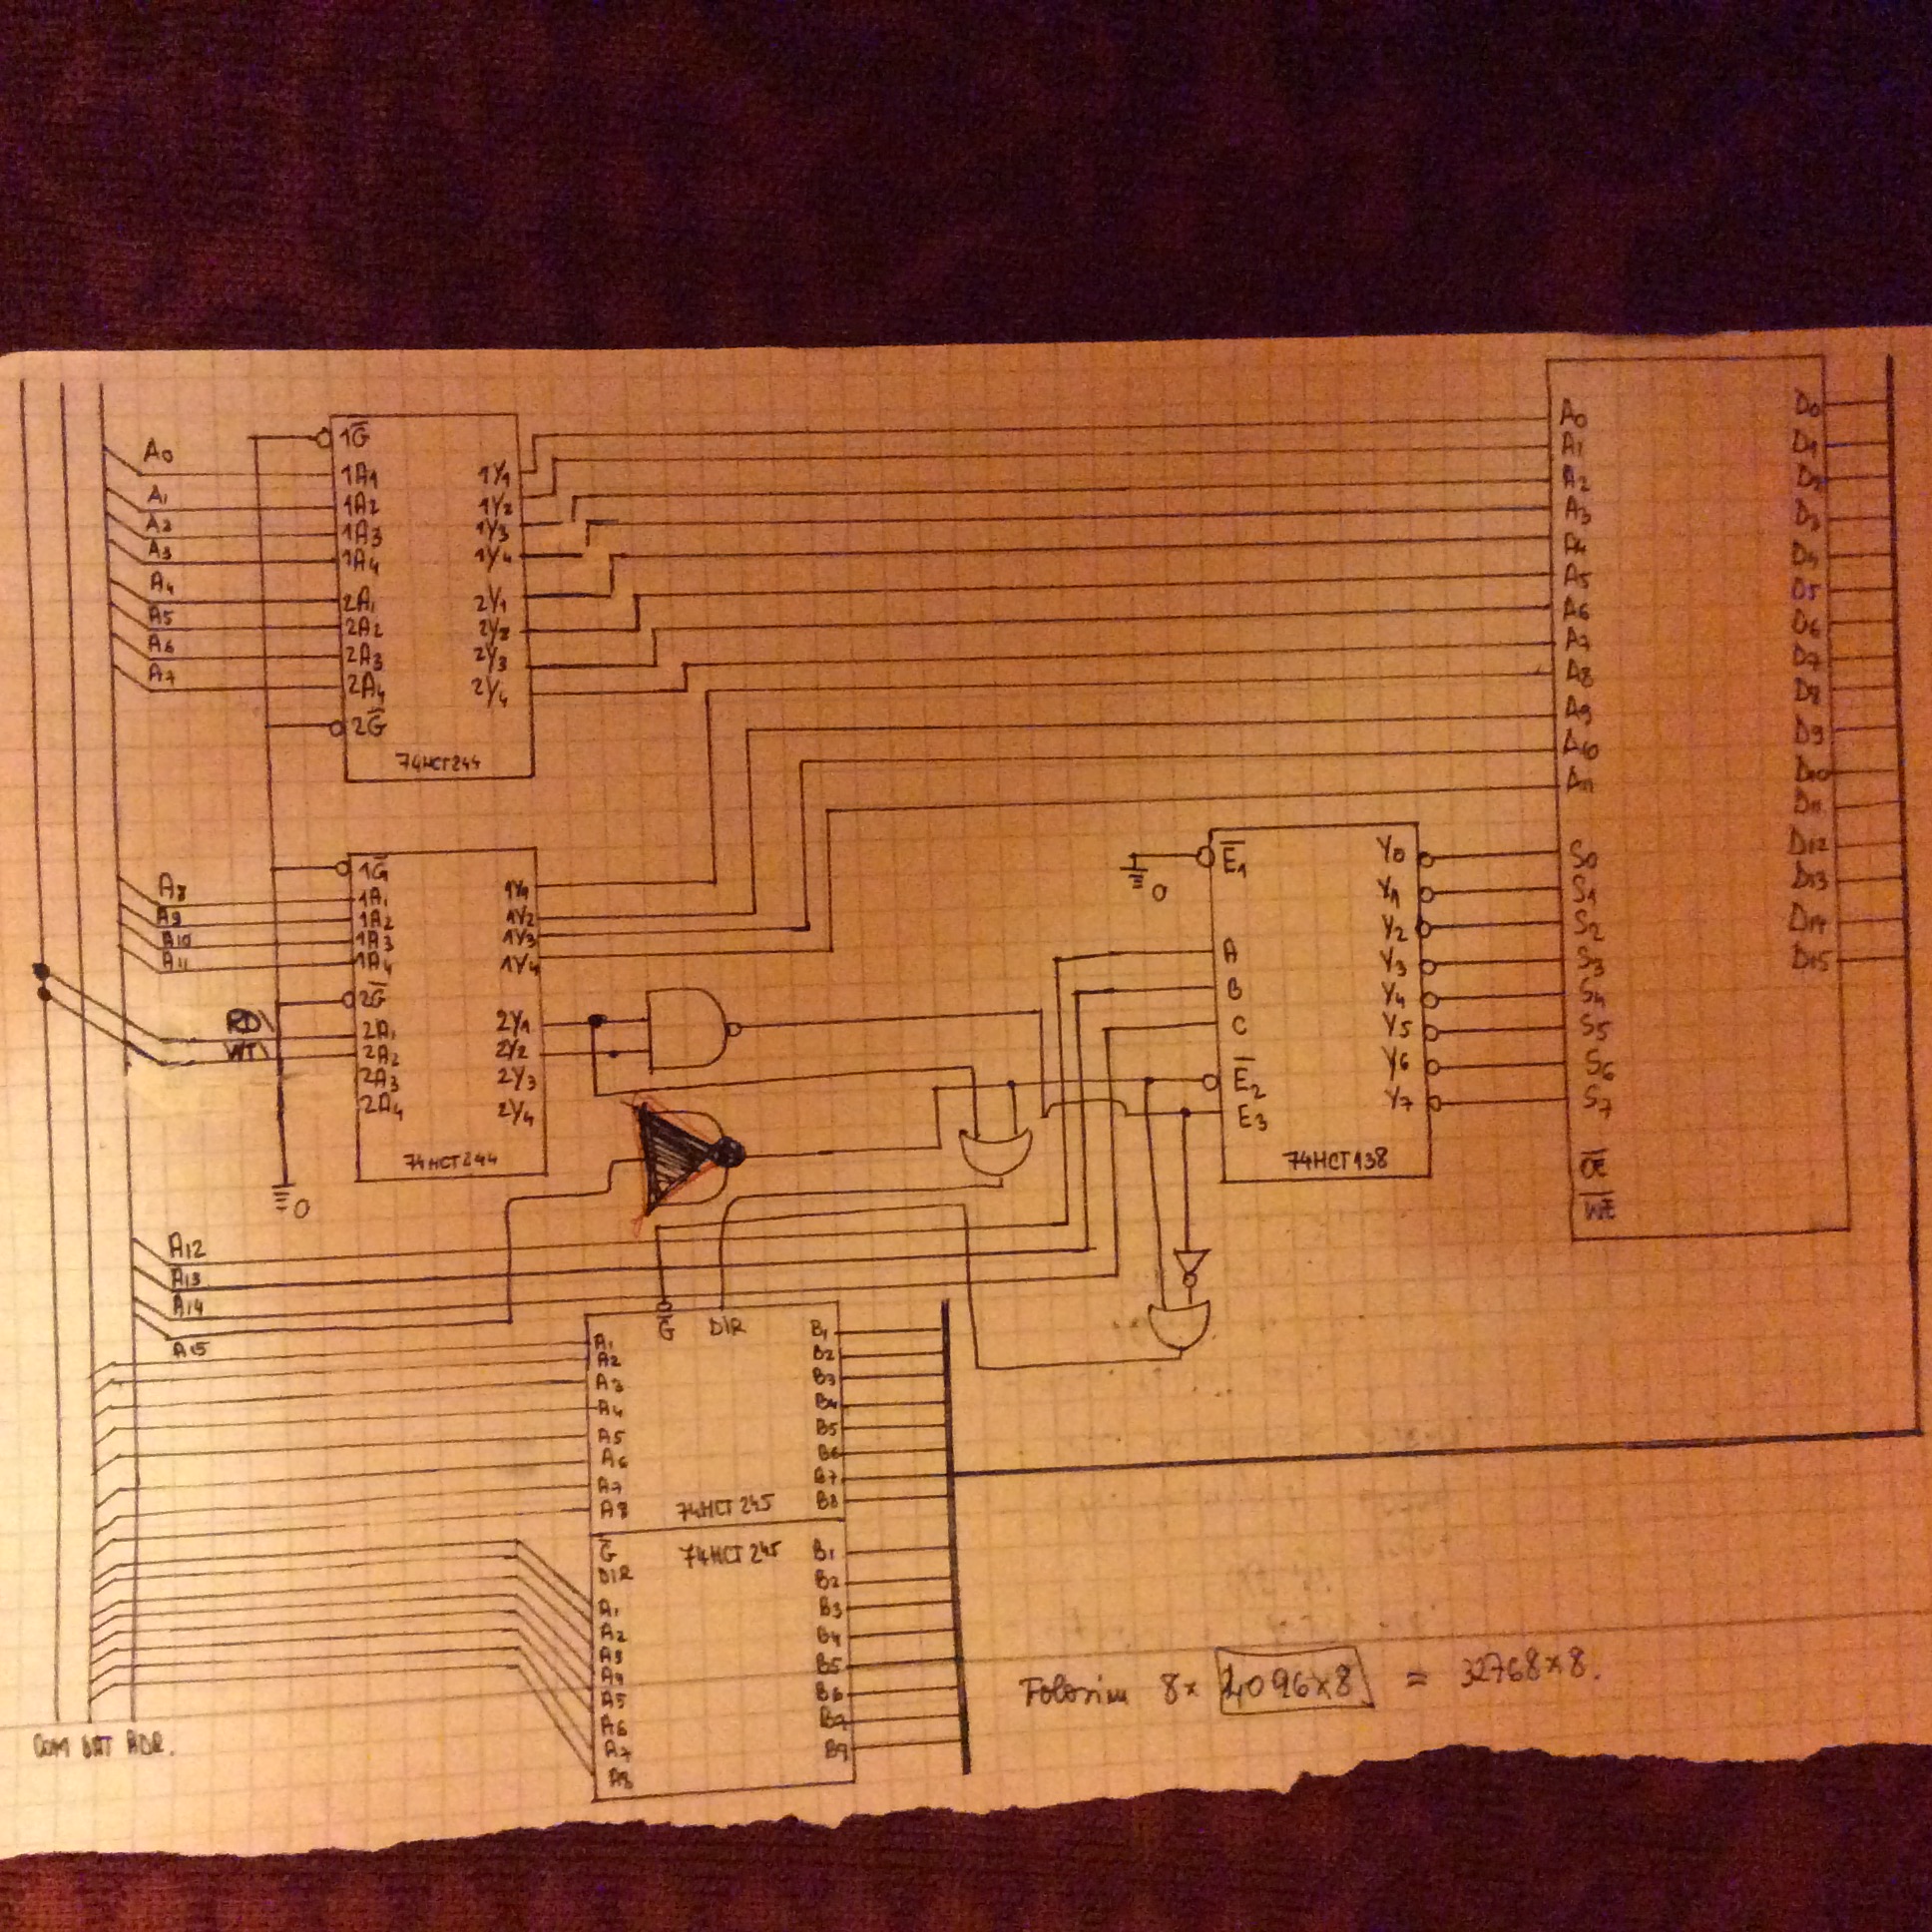 A0
A1
A2
A3
A4
A5
A6
A7
1G̅
1A1
1A2
1A3
1A4
2A1
2A2
2A3
2A4
2G̅
1Y1
1Y2
1Y3
1Y4
2Y1
2Y2
2Y3
2Y4
74HCT244
A8
A9
A10
A11
RD\
WT\
1G̅
1A1
1A2
1A3
1A4
2G̅
2A1
2A2
2A3
2A4
1Y1
1Y2
1Y3
1Y4
2Y1
2Y2
2Y3
2Y4
74HCT244
0
0
E̅1
A
B
C
E̅2
E3
Y0
Y1
Y2
Y3
Y4
Y5
Y6
Y7
74HCT138
A0
A1
A2
A3
A4
A5
A6
A7
A8
A9
A10
A11
S0
S1
S2
S3
S4
S5
S6
S7
O̅E̅
W̅E̅
D0
D1
D2
D3
D4
D5
D6
D7
D8
D9
D10
D11
D12
D13
D14
D15
A12
A13
A14
A15
G̅
DIR
A1
A2
A3
A4
A5
A6
A7
A8
B1
B2
B3
B4
B5
B6
B7
B8
74HCT245
G̅
DIR
74HCT245
A1
A2
A3
A4
A5
A6
A7
A8
B1
B2
B3
B4
B5
B6
B7
Folosim 8x 4096x8 = 32768x8.
COM DAT ADR.